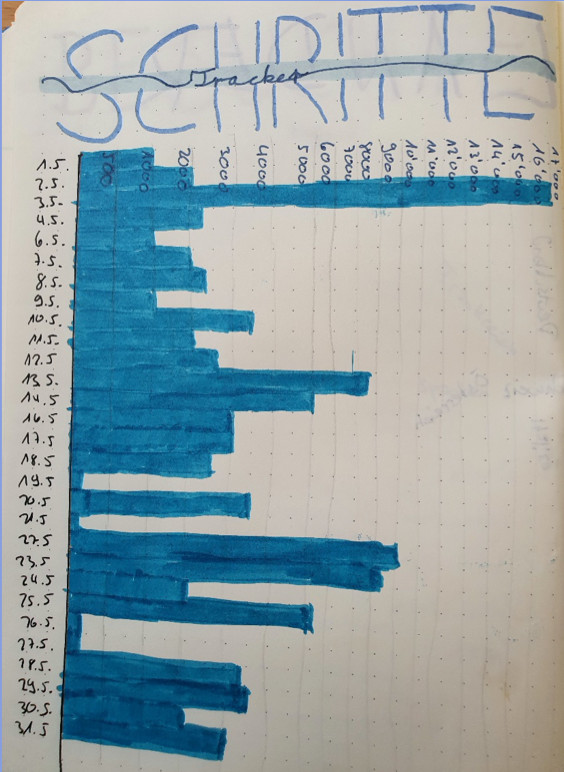 SCHRITTE
Tracker
500 1000 2000 3000 4000 5000 6000 7000 8000 9000 10'000 11'000 12'000 13'000 14'000 15'000 16'000 17'000
1.5.
2.5.
3.5.
4.5.
6.5.
7.5.
8.5.
9.5.
10.5.
11.5.
12.5
13.5.
14.5
16.5
17.5.
18.5
19.5
20.5
21.5
22.5
23.5.
24.5
25.5
26.5.
27.5.
28.5.
29.5.
30.5.
31.5